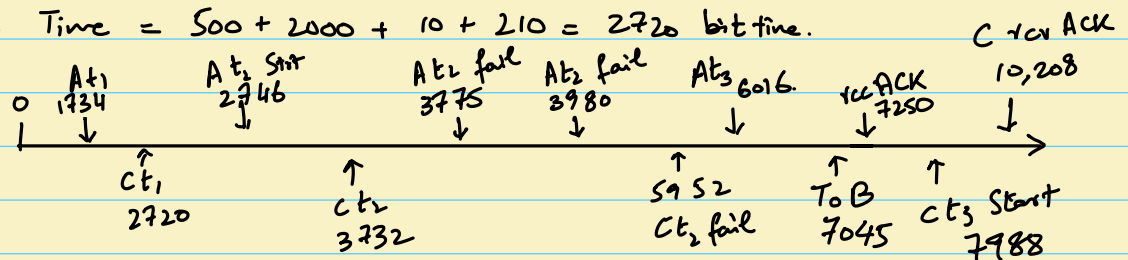 Time = 500 + 2000 + 10 + 210 = 2720 bit time.
C rcv ACK
10,208
At1
1734
At2 Strt
2746
At2 fail
3775
At2 fail
3980
At3 6016.
rcc ACK
7250
0
Ct1
2720
Ct2
3732
5952
Ct2 fail
To B
7045
Ct3 Start
7988